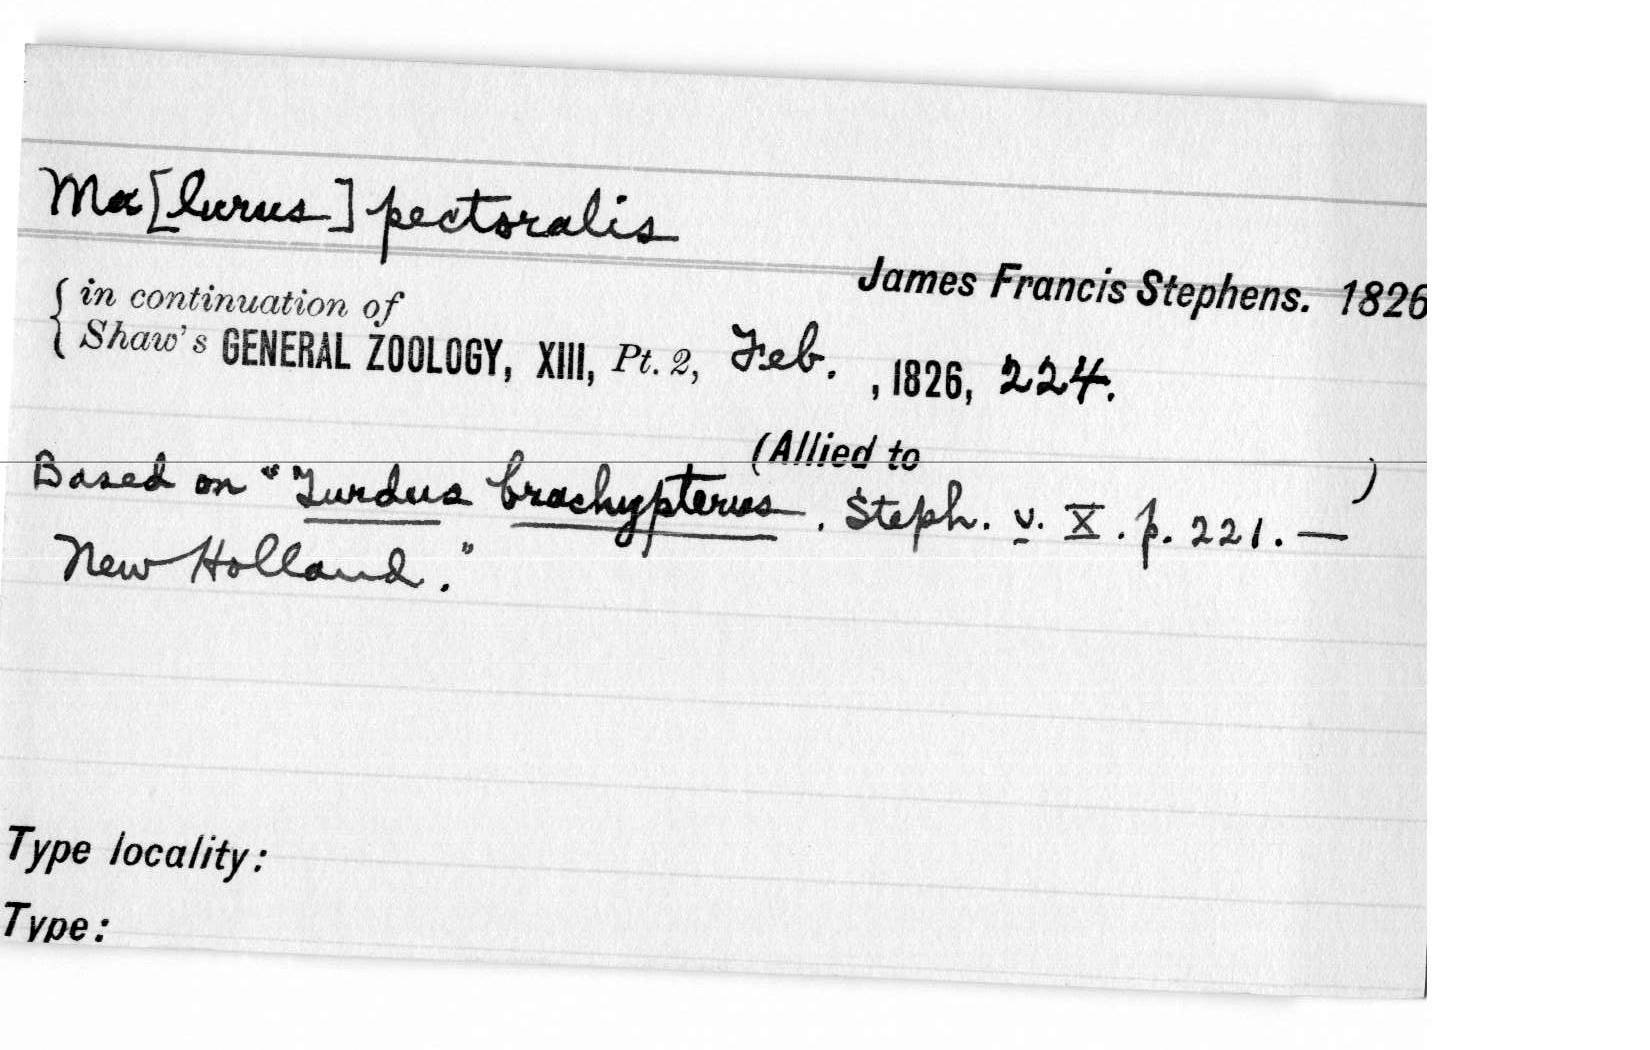 Ma[lurus] pectoralis
James Francis Stephens. 1826
in continuation of
Shaw's GENERAL ZOOLOGY, XIII, Pt. 2, Feb. , 1826, 224.
(Allied to )
Based on "Turdus brachypterus. Steph. v. X. p. 221. —
New Holland."
Type locality:
Type: